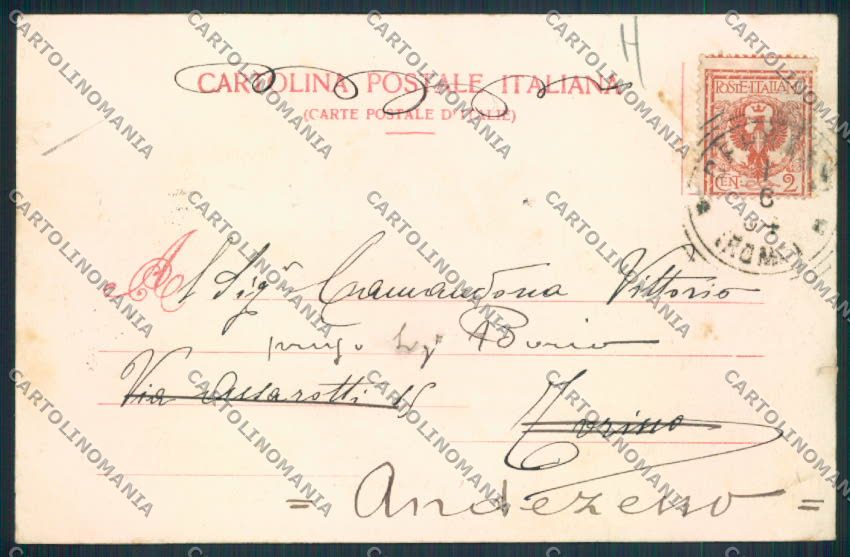 H
CARTOLINA POSTALE ITALIANA
(CARTE POSTALE D'ITALIE)
POSTE ITALIANE
CEN 2
6
(ROMA)
Al Sigʳ Cramandona Vittorio
presso Sigʳ
Via Assarotti 16
Torino
= Andezeno =
CARTOLINOMANIA